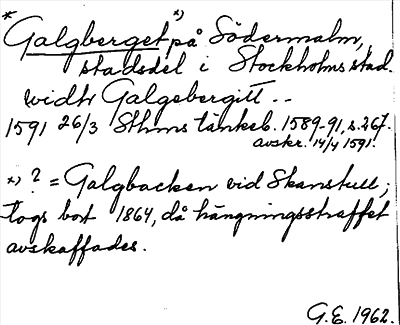 * Galgberget *) på Södermalm,
stadsdel i Stockholms stad.
widtr Galgebergitt --
1591 26/3 Sthms tänkeb. 1589-91, s. 267.
avskr. 14/4 1591.
*) ? = Galgbacken vid Skanstull;
togs bort 1864, då hängningsstraffet
avskaffades.
G.E. 1962.